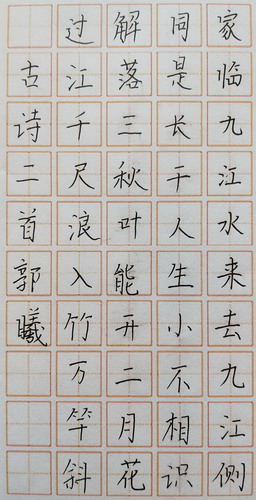 家临九江水来去九江侧
同是长干人生小不相识
解落三秋叶能开二月花
过江千尺浪入竹万竿斜
古诗二首郭曦